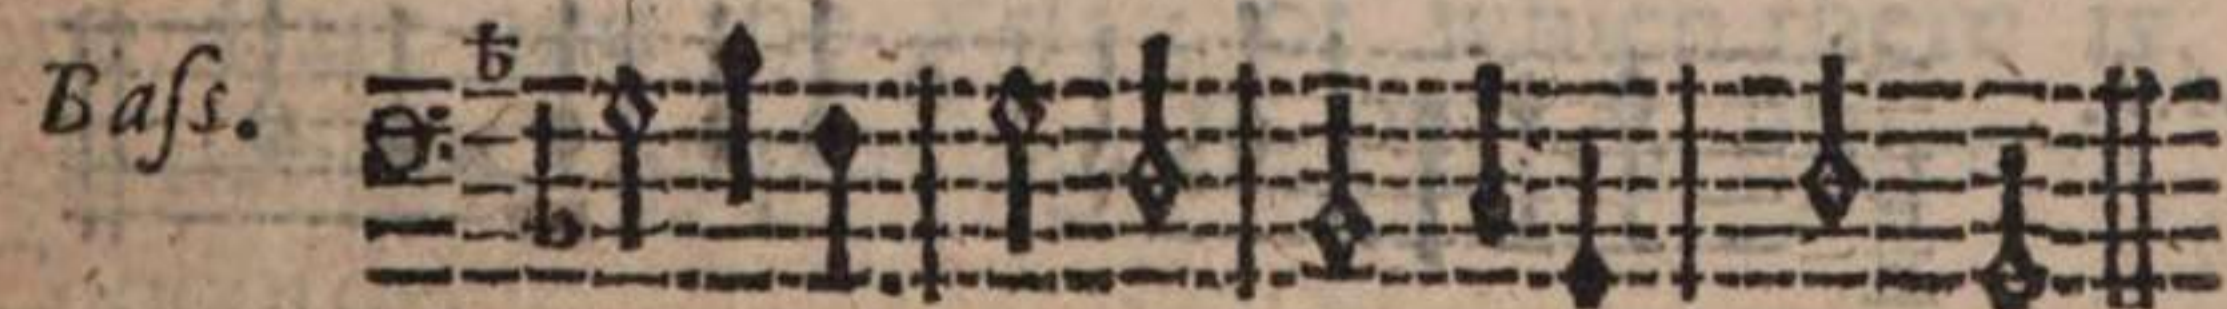 Baſs.